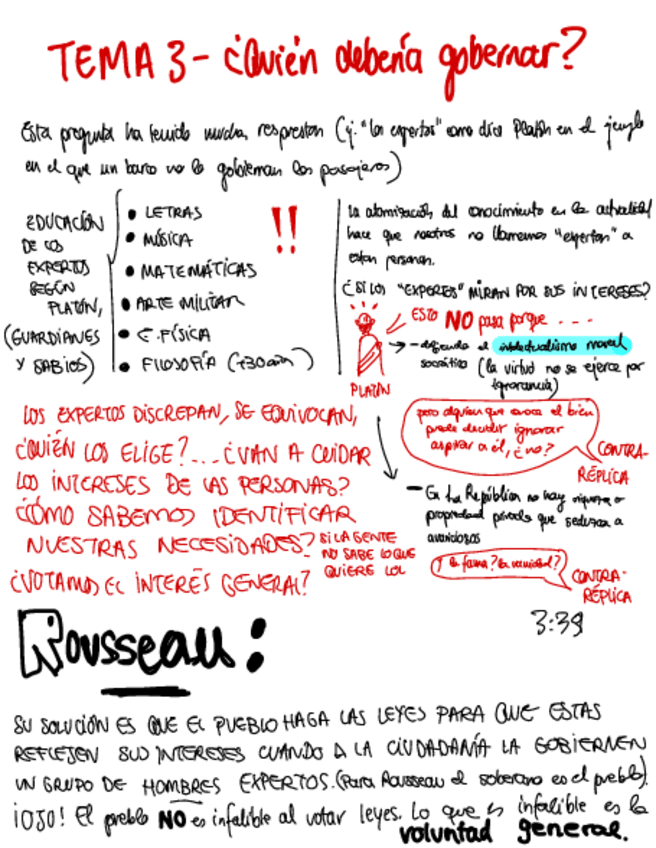 TEMA 3 - ¿Quién debería gobernar?
Esta pregunta ha tenido muchas respuestas (ej. "los expertos" como dice Platón en el ejemplo
en el que un barco no lo gobiernan los pasajeros)
EDUCACIÓN
DE LOS
EXPERTOS
SEGÚN
PLATÓN,
(GUARDIANES
Y SABIOS)
• LETRAS
• MÚSICA
• MATEMÁTICAS
• ARTE MILITAR
• E. FÍSICA
• FILOSOFÍA (+30 años)
!!
La atomización del conocimiento en la actualidad
hace que nosotros no llamemos "expertos" a
estas personas.
¿SI LOS "EXPERTOS" MIRAN POR SUS INTERESES?
ESTO NO pasa porque ....
PLATÓN
→ defiende el intelectualismo moral
socrático (la virtud no se ejerce por
ignorancia)
pero alguien que conoce el bien
puede decidir ignorar
aspirar a él, ¿no?
CONTRA-
RÉPLICA
- En La República no hay riqueza o
propiedad privada que seduzca a
avariciosos
Y la fama? la vanidad?
CONTRA-
RÉPLICA
LOS EXPERTOS DISCREPAN, SE EQUIVOCAN,
¿QUIÉN LOS ELIGE?... ¿VAN A CUIDAR
LOS INTERESES DE LAS PERSONAS?
¿CÓMO SABEMOS IDENTIFICAR
NUESTRAS NECESIDADES?
SI LA GENTE
NO SABE LO QUE
QUIERE LOL
¿VOTAMOS EL INTERÉS GENERAL?
3:39
Rousseau:
SU SOLUCIÓN ES QUE EL PUEBLO HAGA LAS LEYES PARA QUE ESTAS
REFLEJEN SUS INTERESES CUANDO A LA CIUDADANÍA LA GOBIERNEN
UN GRUPO DE HOMBRES EXPERTOS. (Para Rousseau el soberano es el pueblo).
¡OJO! El pueblo NO es infalible al votar leyes. Lo que es infalible es la
voluntad general.